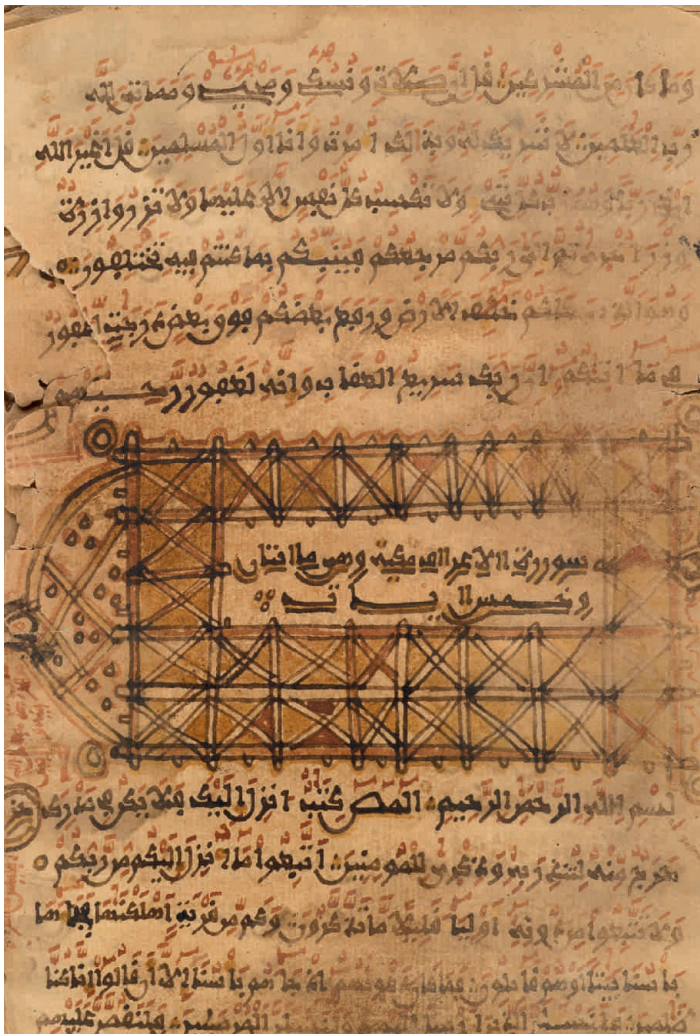 وما كان من المشركين قل ان صلاتي ونسكي ومحياي ومماتي لله
رب العلمين لا شريك له وبذلك امرت وانا اول المسلمين قل اغير الله
ابغي ربا وهو رب كل شيء ولا تكسب كل نفس الا عليها ولا تزر وازرة
وزر اخرى ثم الى ربكم مرجعكم فينبئكم بما كنتم فيه تختلفون
وهو الذي جعلكم خلئف الارض ورفع بعضكم فوق بعض درجت ليبلوكم
في ما اتيكم ان ربك سريع العقاب وانه لغفور رحيم
سورة الاعراف مكية وهي مائتان
وخمس ايات
بسم الله الرحمن الرحيم المص كتب انزل اليك فلا يكن في صدرك
حرج منه لتنذر به وذكرى للمومنين اتبعوا ما انزل اليكم من ربكم
ولا تتبعوا من دونه اوليا قليلا ما تذكرون وكم من قرية اهلكنها فجاها
باسنا بيتا او هم قايلون فما كان دعويهم اذ جاهم باسنا الا ان قالوا انا كنا
ظلمين فلنسئلن الذين ارسل اليهم ولنسئلن المرسلين فلنقصن عليهم